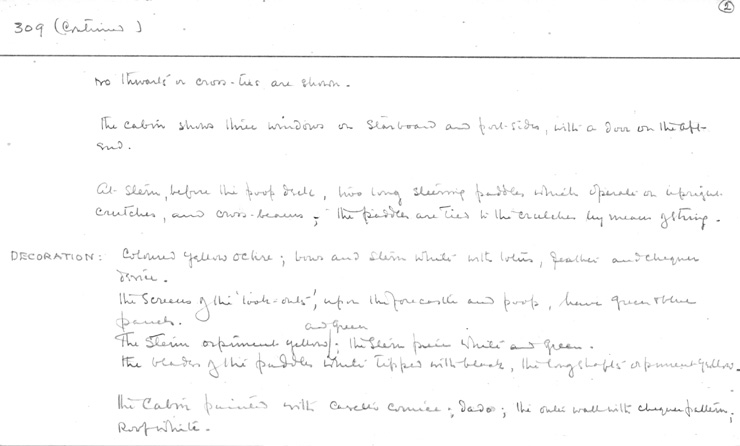 2
309 (Continued)
No thwarts or cross-ties are shown.
The cabin shows three windows on starboard and port-sides, with a door on the aft-
end.
At stern, before the poop deck, two long steering paddles which operate on upright
crutches, and cross-beams; the paddles are tied to the crutches by means of string.
DECORATION: Coloured yellow ochre; bows and stern white with lotus, feather and chequer
device.
The screens of the 'look-outs', upon the forecastle and poop, have green & blue
panels.
and green
The stern orpiment yellow; the stern piece white and green.
The blades of the paddles white tipped with black, the long shafts orpiment yellow.
The Cabin painted with cavetto cornice; dado; the outer wall with chequer pattern;
Roof white.